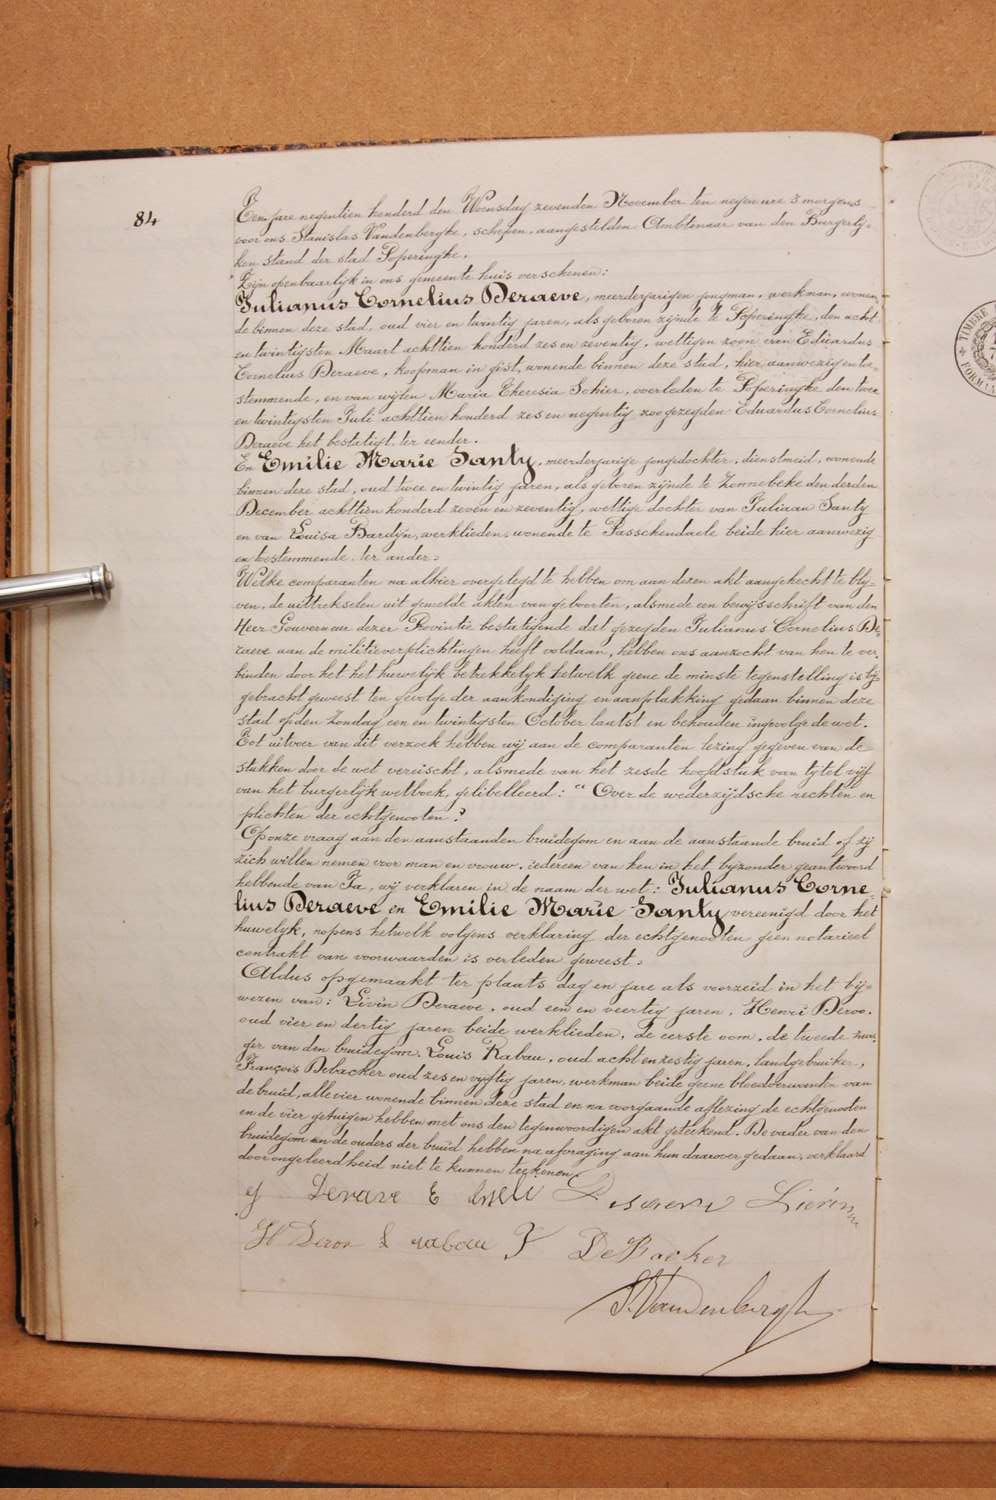 84
Ten jare negentien honderd den Woensdag zevenden November ten negen ure 's morgens
voor ons Stanislas Vandenberghe, schepen, aangestelden Ambtenaar van den Burgerlij-
ken stand der stad Poperinghe,
Zijn openbaarlijk in ons gemeente huis verschenen:
Julianus Cornelius Deraeve, meerderjarigen jongman, werkman, wonen-
de binnen deze stad, oud vier en twintig jaren, als geboren zijnde te Poperinghe, den acht
en twintigsten Maart achttien honderd zes en zeventig, wettigen zoon van Eduardus
Cornelius Deraeve, koopman in gist, wonende binnen deze stad, hier aanwezig en toe-
stemmende, en van wijlen Maria Theresia Schier, overleden te Poperinghe den twee
en twintigsten Juli achttien honderd zes en negentig zoo gezegden Eduardus Cornelius
Deraeve het bestatigt, ter eender.
En Emilie Marie Santy, meerderjarige jongedochter, dienstmeid, wonende
binnen deze stad, oud twee en twintig jaren, als geboren zijnde te Zonnebeke den derden
December achttien honderd zeven en zeventig, wettige dochter van Juliaan Santy
en van Louisa Bardyn, werklieden, wonende te Passchendaele beide hier aanwezig
en toestemmende, ter ander:
Welke comparanten na alhier overgelegd te hebben om aan dezen akt aangehecht te bly-
ven, de uittrekselen uit gemelde akten van geboorten, alsmede een bewijsschrift van den
Heer Gouverneur dezer Provintie bestatigende dat gezegden Julianus Cornelius De-
raeve aan de militieverplichtingen heeft voldaan, hebben ons aanzocht van hen te ver-
binden door het het huwelijk betrekkelyk hetwelk geene de minste tegenstelling is bij-
gebracht geweest ten gevolge der aankondiging en aanplakking gedaan binnen deze
stad op den Zondag een en twintigsten October laatst en behouden ingevolge de wet.
Tot uitvoer van dit verzoek hebben wij aan de comparanten lezing gegeven van de
stukken door de wet vereischt, alsmede van het zesde hoofdstuk van tytel vijf
van het burgerlijk wetboek, gelibelleerd: "Over de wederzijdsche rechten en
plichten der echtgenooten"
Op onze vraag aan den aanstaanden bruidegom en aan de aanstaande bruid of zij
zich willen nemen voor man en vrouw, iedereen van hen in het byzonder geantwoord
hebbende van Ja, wij verklaren in de naam der wet: Julianus Corne-
lius Deraeve en Emilie Marie Santy vereenigd door het
huwelyk, nopens hetwelk volgens verklaring der echtgenooten geen notarieel
contrakt van voorwaarden is verleden geweest.
Aldus opgemaakt ter plaats dag en jare als voorzeid in het bij-
wezen van: Livin Deraeve, oud een en veertig jaren, Henri Deroo,
oud vier en dertig jaren beide werklieden, de eerste oom, de tweede zwa-
ger van den bruidegom, Louis Rabau, oud acht en zestig jaren, landgebruiker,
François Debacker oud zes en vyftig jaren, werkman beide geene bloedverwanten van
de bruid, alle vier wonende binnen deze stad en na voorgaande aflezing de echtgenooten
en de vier getuigen hebben met ons den tegenwoordigen akt geteekend. De vader van den
bruidegom en de ouders der bruid hebben na afvraging aan hun daarover gedaan, verklaard
door ongeleerdheid niet te kunnen teekenen.
Lievin
H Deroo L rabau F DeBacker
S. Vandenberghe